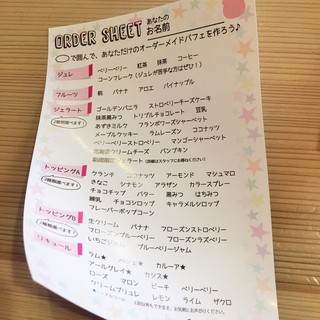 ORDER SHEET あなたの
お名前
で囲んで、あなただけのオーダーメイドパフェを作ろう♪
ジュレ ベリーベリー 紅茶 抹茶 コーヒー
コーンフレーク（ジュレが苦手な方はぜひ！）
フルーツ 桃 バナナ アロエ パイナップル
ジェラート ゴールデンバニラ ストロベリーチーズケーキ
2種類選べます！ 抹茶黒みつ トリプルチョコレート 豆乳
あずきミルク フランボワーズシャーベット
メープルクッキー ラムレーズン ココナッツ
ベリーベリーストロベリー マンゴーシャーベット
クリームチーズ パンプキン
トッピングA クランチ ココナッツ アーモンド マシュマロ
きなこ シナモン アラザン カラースプレー
チョコチップ バター 黒みつ はちみつ
練乳 チョコシロップ キャラメルシロップ
フレーバーポップコーン
トッピングB 生クリーム バナナ フローズンストロベリー
2種類選べます！ フローズンブルーベリー フローズンラズベリー
いちごジャム ブルーベリージャム
リキュール ラム★ カルーア★
アールグレイ★ カシス★
ローズ マロン ピーチ ベリーベリー
クリームブリュレ レモン ライム ザクロ